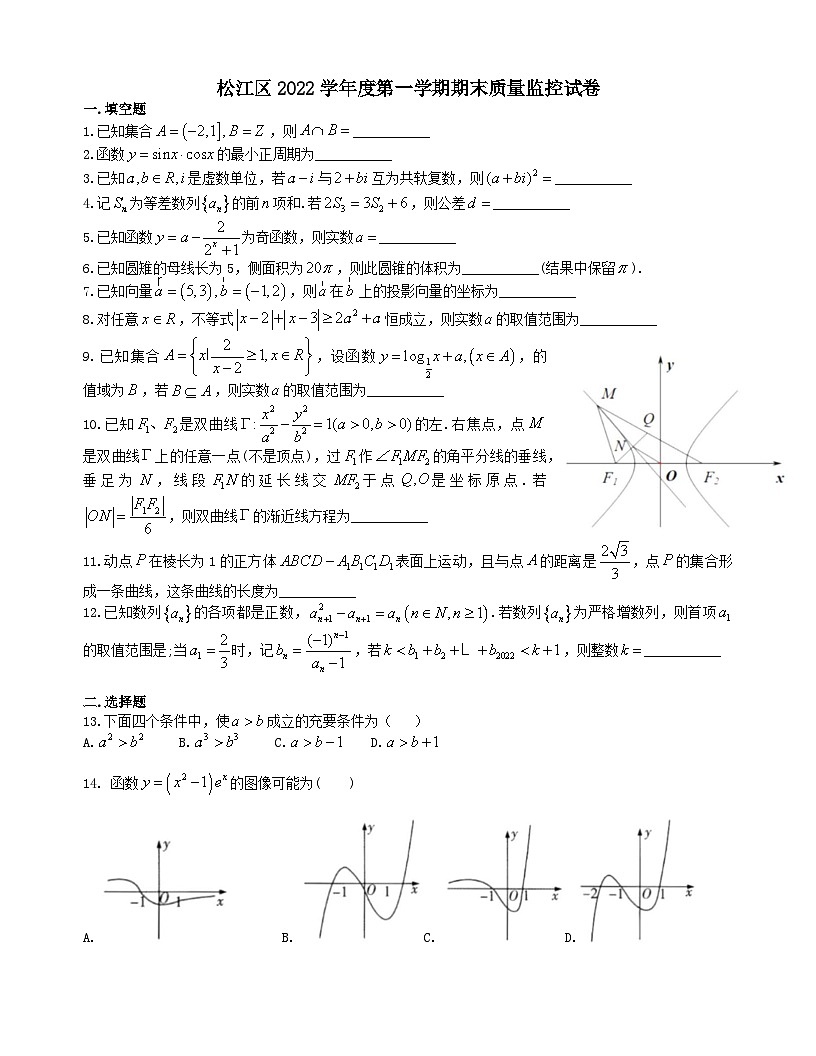 松江区 2022 学年度第一学期期末质量监控试卷
一.填空题
1.已知集合 A = (−2,1], B = Z ，则 A∩ B = ___________
2.函数 y = sinx · cosx 的最小正周期为___________
3.已知 a,b ∈ R, i 是虚数单位，若 a − i 与 2 + bi 互为共轭复数，则 (a + bi)² = ___________
4.记 Sₙ 为等差数列 {aₙ} 的前 n 项和.若 2S₃ = 3S₂ + 6，则公差 d = ___________
5.已知函数 y = a − 2/(2ˣ + 1) 为奇函数，则实数 a = ___________
6.已知圆雉的母线长为 5，侧面积为 20π，则此圆锥的体积为___________(结果中保留 π).
7.已知向量 a = (5,3), b = (−1,2)，则 a 在 b 上的投影向量的坐标为___________
8.对任意 x ∈ R，不等式 |x − 2| + |x − 3| ≥ 2a² + a 恒成立，则实数 a 的取值范围为___________
9. 已知集合 A = {x| 2/(x − 2) ≥ 1, x ∈ R}，设函数 y = log_{1/2} x + a, (x ∈ A)，的
值域为 B，若 B ⊆ A，则实数 a 的取值范围为___________
10.已知 F₁、F₂ 是双曲线 Γ: x²/a² − y²/b² = 1(a > 0, b > 0) 的左.右焦点，点 M
是双曲线 Γ 上的任意一点(不是顶点)，过 F₁ 作 ∠F₁MF₂ 的角平分线的垂线，
垂足为 N，线段 F₁N 的延长线交 MF₂ 于点 Q,O 是坐标原点.若
|ON| = |F₁F₂|/6，则双曲线 Γ 的渐近线方程为___________
y
M
Q
N
F₁ O F₂ x
11.动点 P 在棱长为 1 的正方体 ABCD − A₁B₁C₁D₁ 表面上运动，且与点 A 的距离是 2√3/3，点 P 的集合形
成一条曲线，这条曲线的长度为___________
12.已知数列 {aₙ} 的各项都是正数，aₙ₊₁² − aₙ₊₁ = aₙ (n ∈ N, n ≥ 1).若数列 {aₙ} 为严格增数列，则首项 a₁
的取值范围是;当 a₁ = 2/3 时，记 bₙ = (−1)ⁿ⁻¹/(aₙ − 1)，若 k < b₁ + b₂ + L + b₂₀₂₂ < k + 1，则整数 k = ___________
二.选择题
13.下面四个条件中，使 a > b 成立的充要条件为（ ）
A. a² > b² B. a³ > b³ C. a > b − 1 D. a > b + 1
14. 函数 y = (x² − 1)eˣ 的图像可能为( )
y y y y
−1 O 1 x −1 O 1 x −1 O 1 x −2 −1 O 1 x
A. B. C. D.